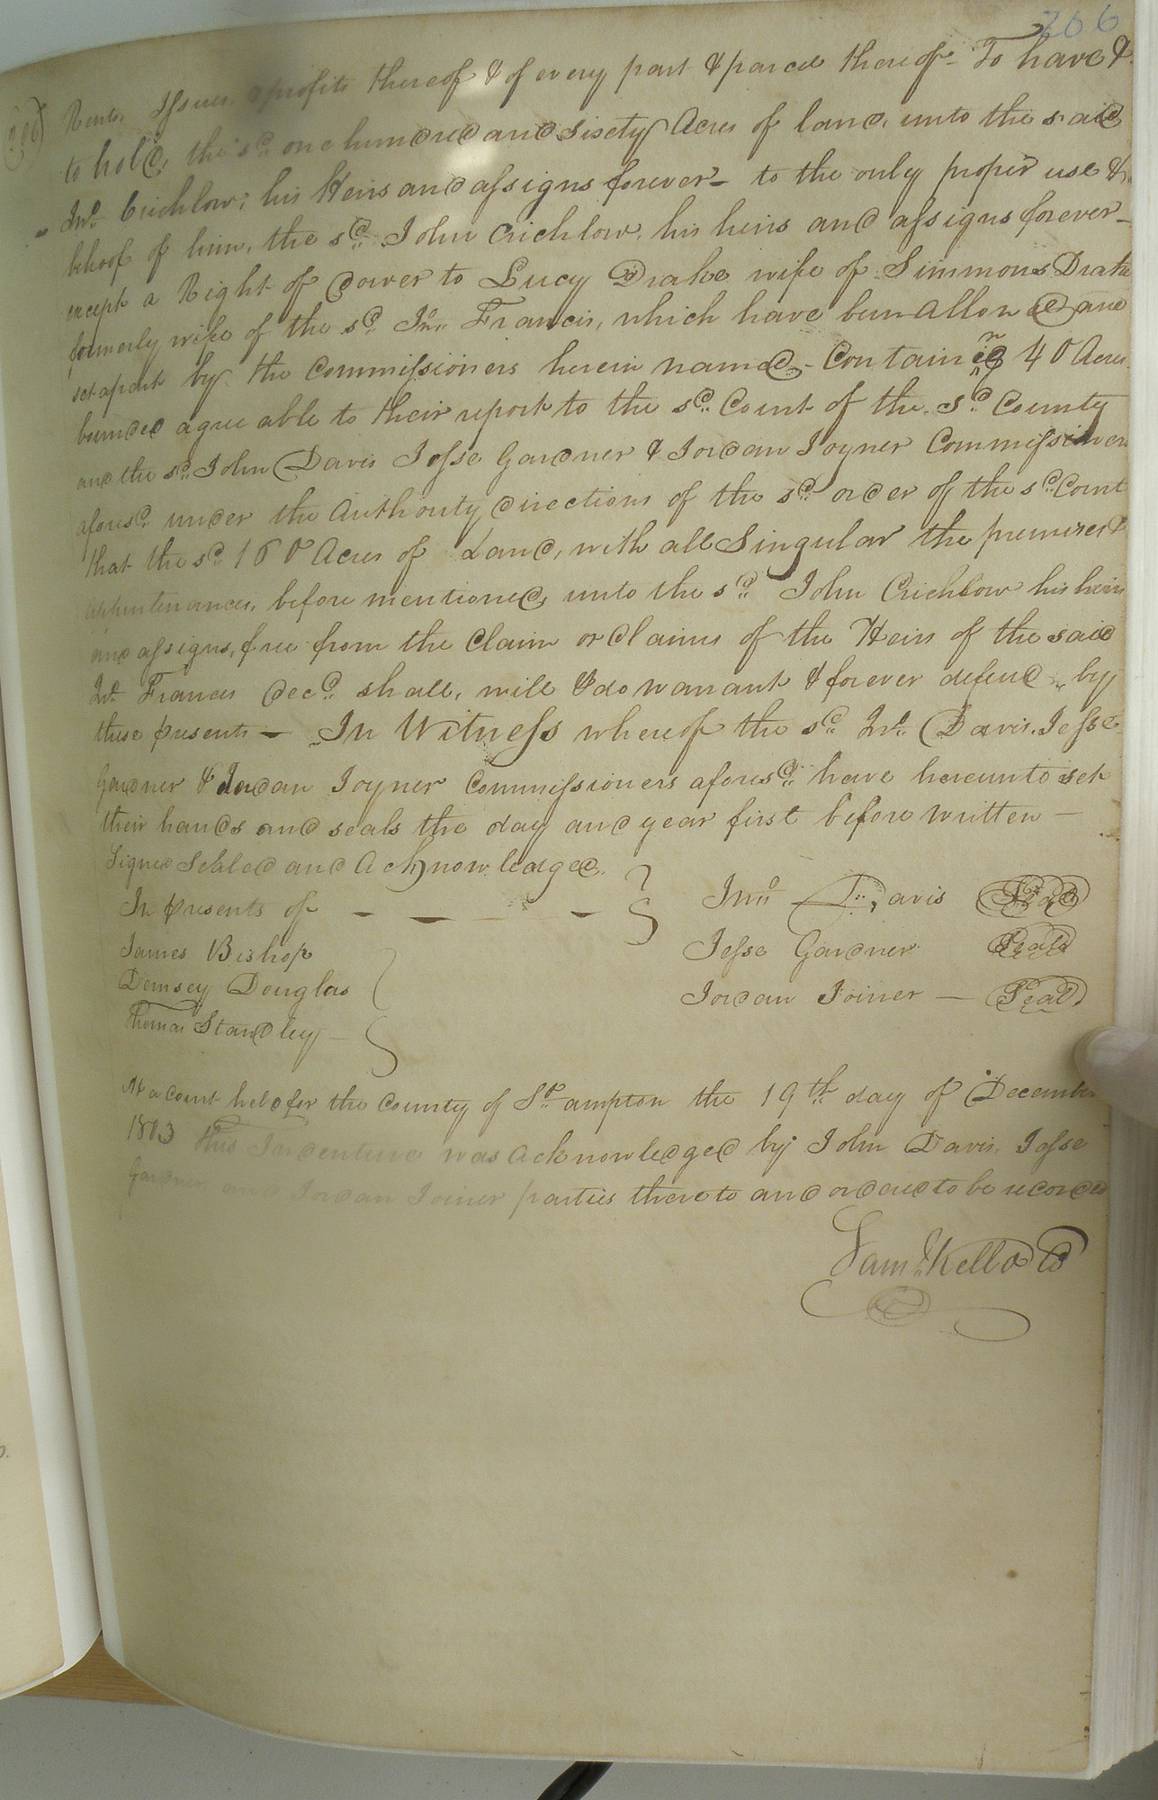 206
206)
Rents, Issues & profits thereof & of every part & parcel thereof - To have &
to hold, the sd. one hundred and sixety Acres of land, unto the said
Jno. Crichlow, his Heirs and assigns forever - to the only proper use &
behoof of him, the sd. John Crichlow, his heirs and assigns forever -
except a Right of dower to Lucy Drake wife of Simmons Drake
formerly wife of the sd. Jno. Francis, which have been Allowed and
set apart by the Commissioners herein named - Containeg 40 Acres
bounded agreeable to their report to the sd. Court of the sd. County
and the sd. John Davis Jesse Gardner & Jordan Joyner Commissioners
aforesd. under the Authority directions of the sd. order of the sd. Court
that the sd. 160 Acres of Land, with all Singular the premises &
appurtenances, before mentioned, unto the sd. John Crichlow his heirs
and assigns, free from the Claim or Claims of the Heirs of the said
Jno. Frances decd. shall, will & do warrant & forever defend, by
these presents - In Witness whereof the sd. Jno. Davis, Jesse
Gardner & Jordan Joyner Commissioners aforesd. have hereunto set
their hands and seals the day and year first before written -
Signed Sealed and Acknowledged.
In presents of - - - - -
Jno. Davis Seal
Jesse Gardner Seal
Jordan Joiner - Seal
James Bishop
Demsey Douglas
Thomas Standley -
At a Court held for the County of So. ampton the 19th. day of December
1803 this Indenture was acknowledged by John Davis, Jesse
Gardner, and Jordan Joiner parties thereto and ordered to be recorded
Saml. Kello